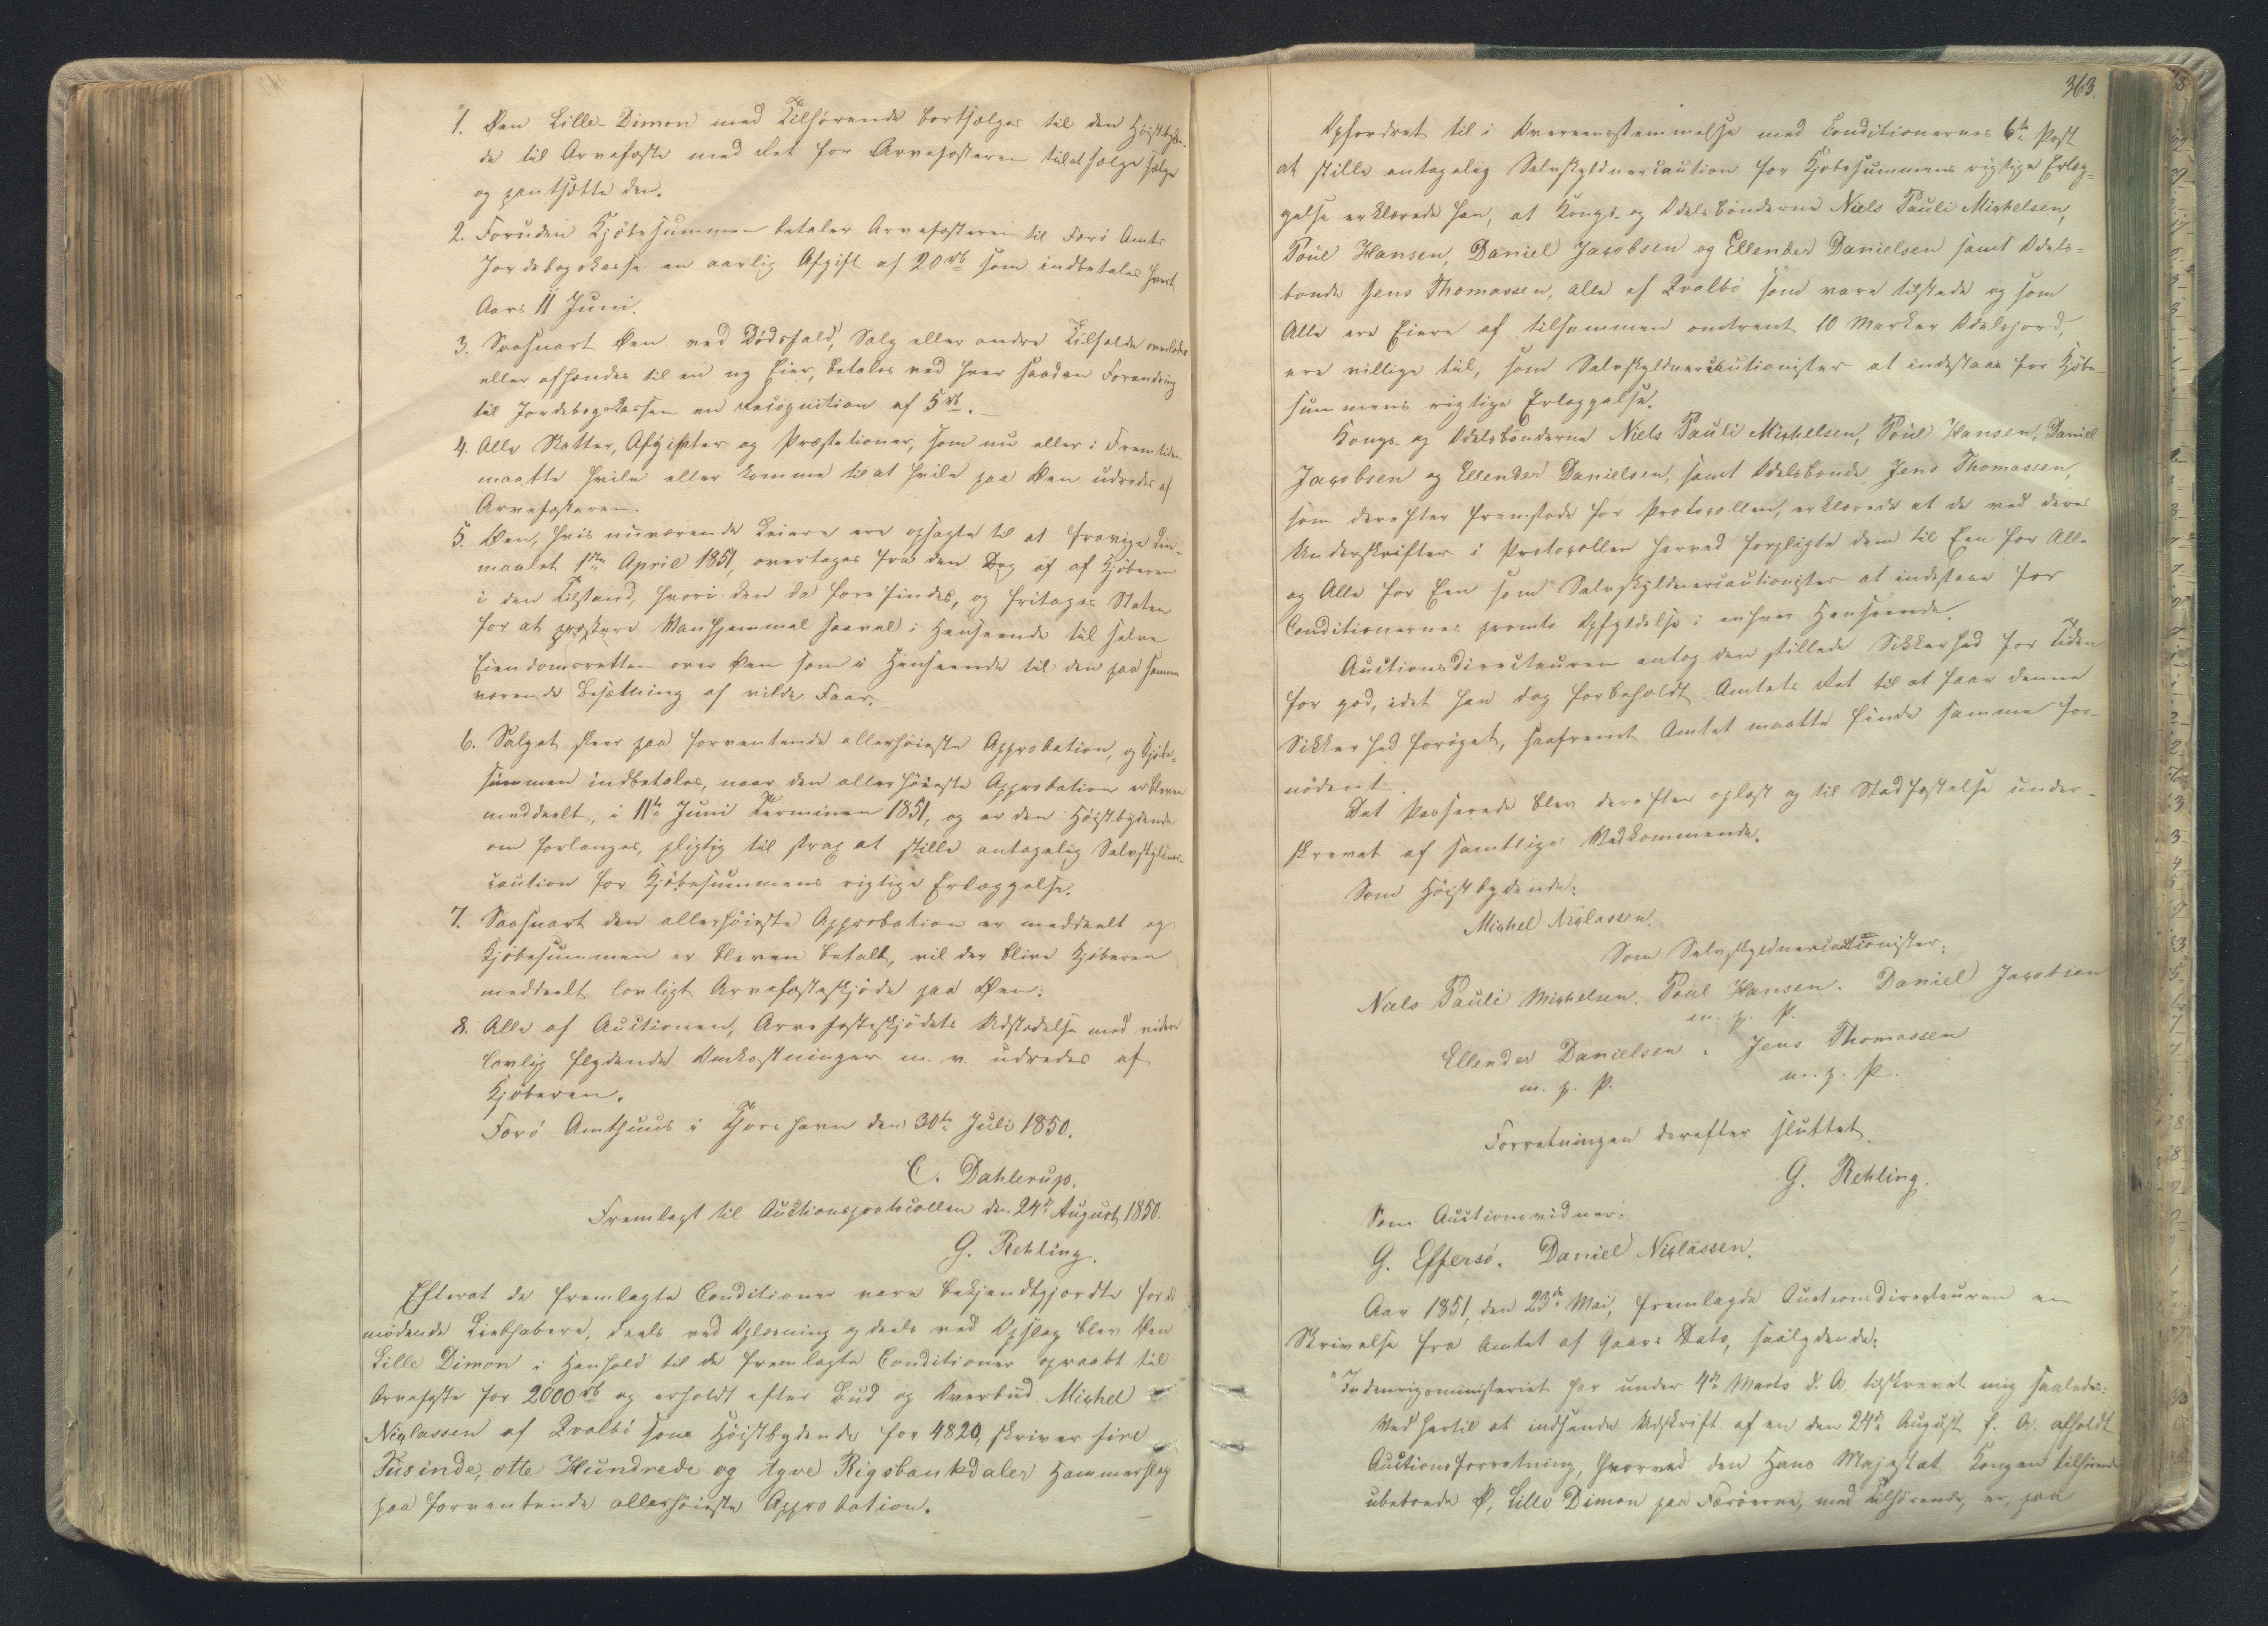 1. Øen Lille-Dimon med Tilhørende bortsælges til den Høistbyden-
de til Arvefæste med Ret for Arvefæsteren til at sælge
og pantsætte den.
2. Foruden Kjöbesummen betaler Arvefæsteren til Færö Amts
Jordebogskasse en aarlig Afgift af 20 rb som indbetales hvert
Aars 11 Juni.
3. Saasnart Øen ved Dödsfald, Salg eller andre Tilfælde overlades
eller afhændes til en ny Eier, betales ved hver saadan Forandring
til Jordebogskassen en Recognition af 5 rb.
4. Alle Skatter, Afgifter og Præstationer, som nu eller i Fremtiden
maatte hvile eller komme til at hvile paa Øen udredes af
Arvefæsteren.
5. Øen, hvis nuværende Leiere ere opsagte til at fravige Lei-
maalet 1ste April 1851, overtages fra den Dag af af Kjöberen
i den Tilstand, hvori den da forefindes, og fritages Staten
for at præstere Vanhjemmel saavel i Henseende til selve
Eiendomsretten over Øen som i Henseende til den paa samme
værende Besætning af vilde Faar.
6. Salget skeer paa forventende allerhöieste Approbation, og Kjöbe-
summen indbetales, naar den allerhöieste Approbation er bleven
meddeelt, i 11te Juni Terminen 1851, og er den Höistbydende
om forlanges, pligtig til strax at stille antagelig Selvskyldner-
caution for Kjöbesummens rigtige Erlæggelse.
7. Saasnart den allerhöieste Approbation er meddeelt og
Kjöbesummen er bleven betalt, vil der blive Kjöberen
meddeelt lovligt Arvefæsteskjöde paa Øen.
8. Alle af Auctionen, Arvefæsteskjödets Udstædelse med videre
lovlig flydende Omkostninger m. v. udredes af
Kjöberen.
Færö Amthuus i Thorshavn den 30te Juli 1850.
C. Dahlerup.
Fremlagt til Auctionsprotocollen den 24de August 1850.
G. Rehling.
Efterat de fremlagte Conditioner vare bekjendtgjordte for de
mödende Liebhabere, deels ved Oplæsning og deels ved Opslag blev Øen
Lille Dimon i Henhold til de fremlagte Conditioner opraabt til
Arvefæste for 2000 rb og erholdt efter Bud og Overbud Michel
Niclassen af Qvalbö som Höistbydende for 4820, skriver fire
Tusinde, otte Hundrede og tyve Rigsbankdaler Hammerslag
paa forventende allerhöieste Approbation.
363.
Opfordret til i Overeensstemmelse med Conditionernes 6te Post
at stille antagelig Selvskyldnercaution for Kjöbesummens rigtige Erlæg-
gelse erklærede han, at Kongs- og Odelsbönderne Niels Pauli Michelsen,
Poul Hansen, Daniel Jacobsen og Ellender Danielsen samt Odels-
bonde Jens Thomassen, alle af Qvalbö som vare tilstede og som
Alle ere Eiere af tilsammen omtrent 10 Marker Odelsjord,
ere villige til, som Selvskyldnercautionister at indestaae for Kjöbe-
summens rigtige Erlæggelse.
Kongs- og Odelsbönderne Niels Pauli Michelsen, Poul Hansen, Daniel
Jacobsen og Ellender Danielsen, samt Odelsbonde Jens Thomassen,
som derefter fremstode for Protocollen, erklærede at de ved deres
Underskrifter i Protocollen herved forpligte dem til Een for Alle
og Alle for Een som Selvskyldnercautionister at indestaae for
Conditionernes promte Opfyldelse i enhver Henseende.
Auctionsdirecteuren antog den stillede Sikkerhed for Tiden
for god, idet han dog forbeholdt Amtets Ret til at faae denne
Sikkerhed foröget, saafremt Amtet maatte finde samme for-
nödent.
Det Passerede blev derefter oplæst og til Stadfæstelse under-
skrevet af samtlige Vedkommende.
Som Höistbydende:
Michel Niclassen.
Som Selvskyldnercautionister:
Niels Pauli Michelsen. Poul Hansen. Daniel Jacobsen
m. f. P.
Ellender Danielsen. Jens Thomassen
m. f. P. m. f. P.
Forretningen derefter sluttet.
G. Rehling.
Som Auctionsvidner:
G. Effersö. Daniel Niclassen.
Aar 1851, den 23de Mai, fremlagde Auctionsdirecteuren en
Skrivelse fra Amtet af Gaars Dato, saalydende:
"Indenrigsministeriet har under 4de Marts d. A. tilskrevet mig saaledes:
Ved hertil at indsende Udskrift af en den 24de August f. A. afholdt
Auctionsforretning, hvorved den Hans Majestæt Kongen tilhörende
ubeboede Ø, Lille Dimon paa Færöerne, med Tilhörende, er, paa